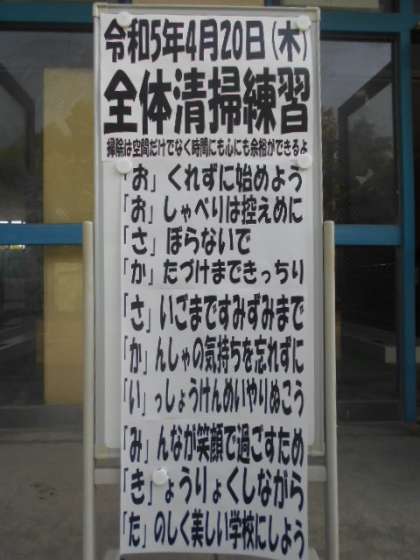 令和5年4月20日(木)
全体清掃練習
掃除は空間だけでなく時間にも心にも余裕ができるよ
「お」くれずに始めよう
「お」しゃべりは控えめに
「さ」ぼらないで
「か」たづけまできっちり
「さ」いごまですみずみまで
「か」んしゃの気持ちを忘れずに
「い」っしょうけんめいやりぬこう
「み」んなが笑顔で過ごすため
「き」ょうりょくしながら
「た」のしく美しい学校にしよう